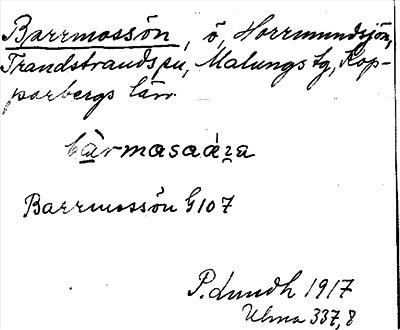 Barrmossön, ö, Horrmundsjön,
Transtrands sn, Malungs tg, Kop-
parbergs län.
Barrmossön G 107
P. Lundh 1917
Ulma 337,8